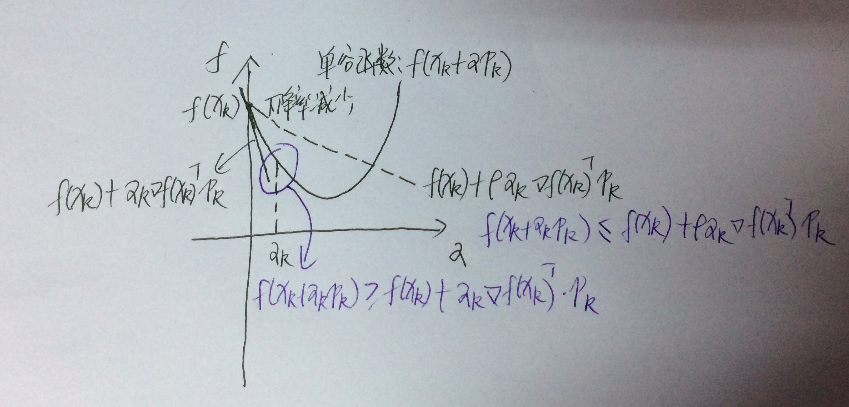 f
单谷函数: f(xₖ+αPₖ)
f(xₖ)
下降率减少
f(xₖ)+αₖ∇f(xₖ)ᵀPₖ
f(xₖ)+ραₖ∇f(xₖ)ᵀPₖ
f(xₖ+αₖPₖ) ≤ f(xₖ)+ραₖ∇f(xₖ)ᵀPₖ
αₖ
α
f(xₖ+αₖPₖ) ≥ f(xₖ)+αₖ∇f(xₖ)ᵀ·Pₖ